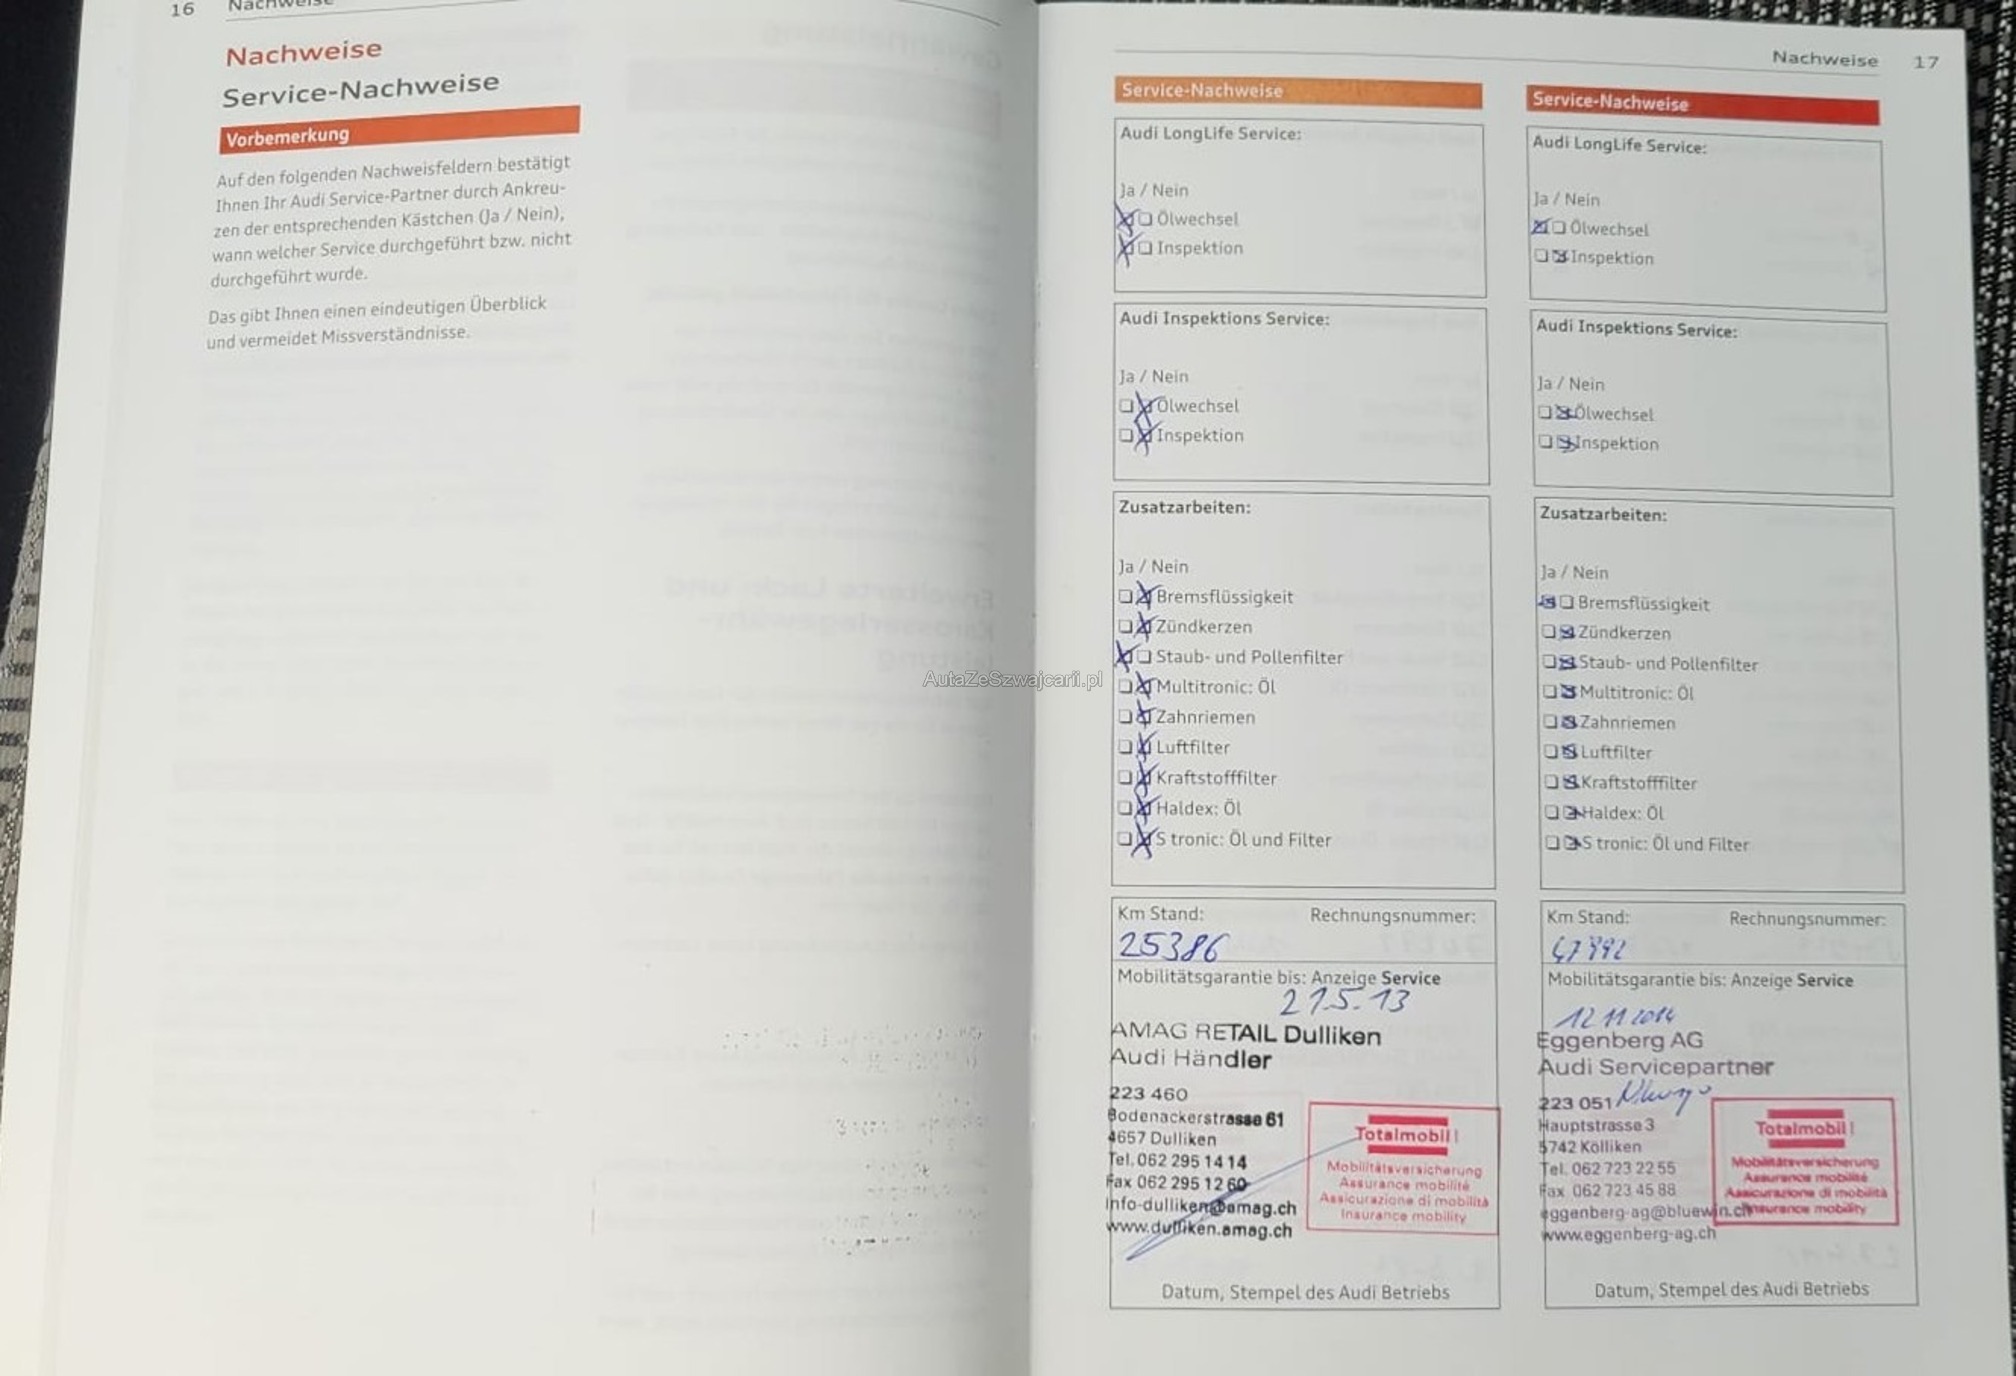 16 Nachweise
Nachweise
Service-Nachweise
Vorbemerkung
Auf den folgenden Nachweisfeldern bestätigt
Ihnen Ihr Audi Service-Partner durch Ankreu-
zen der entsprechenden Kästchen (Ja / Nein),
wann welcher Service durchgeführt bzw. nicht
durchgeführt wurde.
Das gibt Ihnen einen eindeutigen Überblick
und vermeidet Missverständnisse.
AutaZeSzwajcarii.pl
Nachweise 17
Service-Nachweise
Audi LongLife Service:
Ja / Nein
Ölwechsel
Inspektion
Audi Inspektions Service:
Ja / Nein
Ölwechsel
Inspektion
Zusatzarbeiten:
Ja / Nein
Bremsflüssigkeit
Zündkerzen
Staub- und Pollenfilter
Multitronic: Öl
Zahnriemen
Luftfilter
Kraftstofffilter
Haldex: Öl
S tronic: Öl und Filter
Km Stand: Rechnungsnummer:
25386
Mobilitätsgarantie bis: Anzeige Service
21.5.13
AMAG RETAIL Dulliken
Audi Händler
223 460
Bodenackerstrasse 61
4657 Dulliken
Tel. 062 295 14 14
Fax 062 295 12 60
info-dulliken@amag.ch
www.dulliken.amag.ch
Totalmobil!
Mobilitätsversicherung
Assurance mobilité
Assicurazione di mobilità
Insurance mobility
Datum, Stempel des Audi Betriebs
Service-Nachweise
Audi LongLife Service:
Ja / Nein
Ölwechsel
Inspektion
Audi Inspektions Service:
Ja / Nein
Ölwechsel
Inspektion
Zusatzarbeiten:
Ja / Nein
Bremsflüssigkeit
Zündkerzen
Staub- und Pollenfilter
Multitronic: Öl
Zahnriemen
Luftfilter
Kraftstofffilter
Haldex: Öl
S tronic: Öl und Filter
Km Stand: Rechnungsnummer:
Mobilitätsgarantie bis: Anzeige Service
12.11.2014
Eggenberg AG
Audi Servicepartner
223 051
Hauptstrasse 3
5742 Kölliken
Tel. 062 723 22 55
Fax 062 723 45 88
eggenberg-ag@bluewin.ch
www.eggenberg-ag.ch
Totalmobil!
Mobilitätsversicherung
Assurance mobilité
Assicurazione di mobilità
Insurance mobility
Datum, Stempel des Audi Betriebs